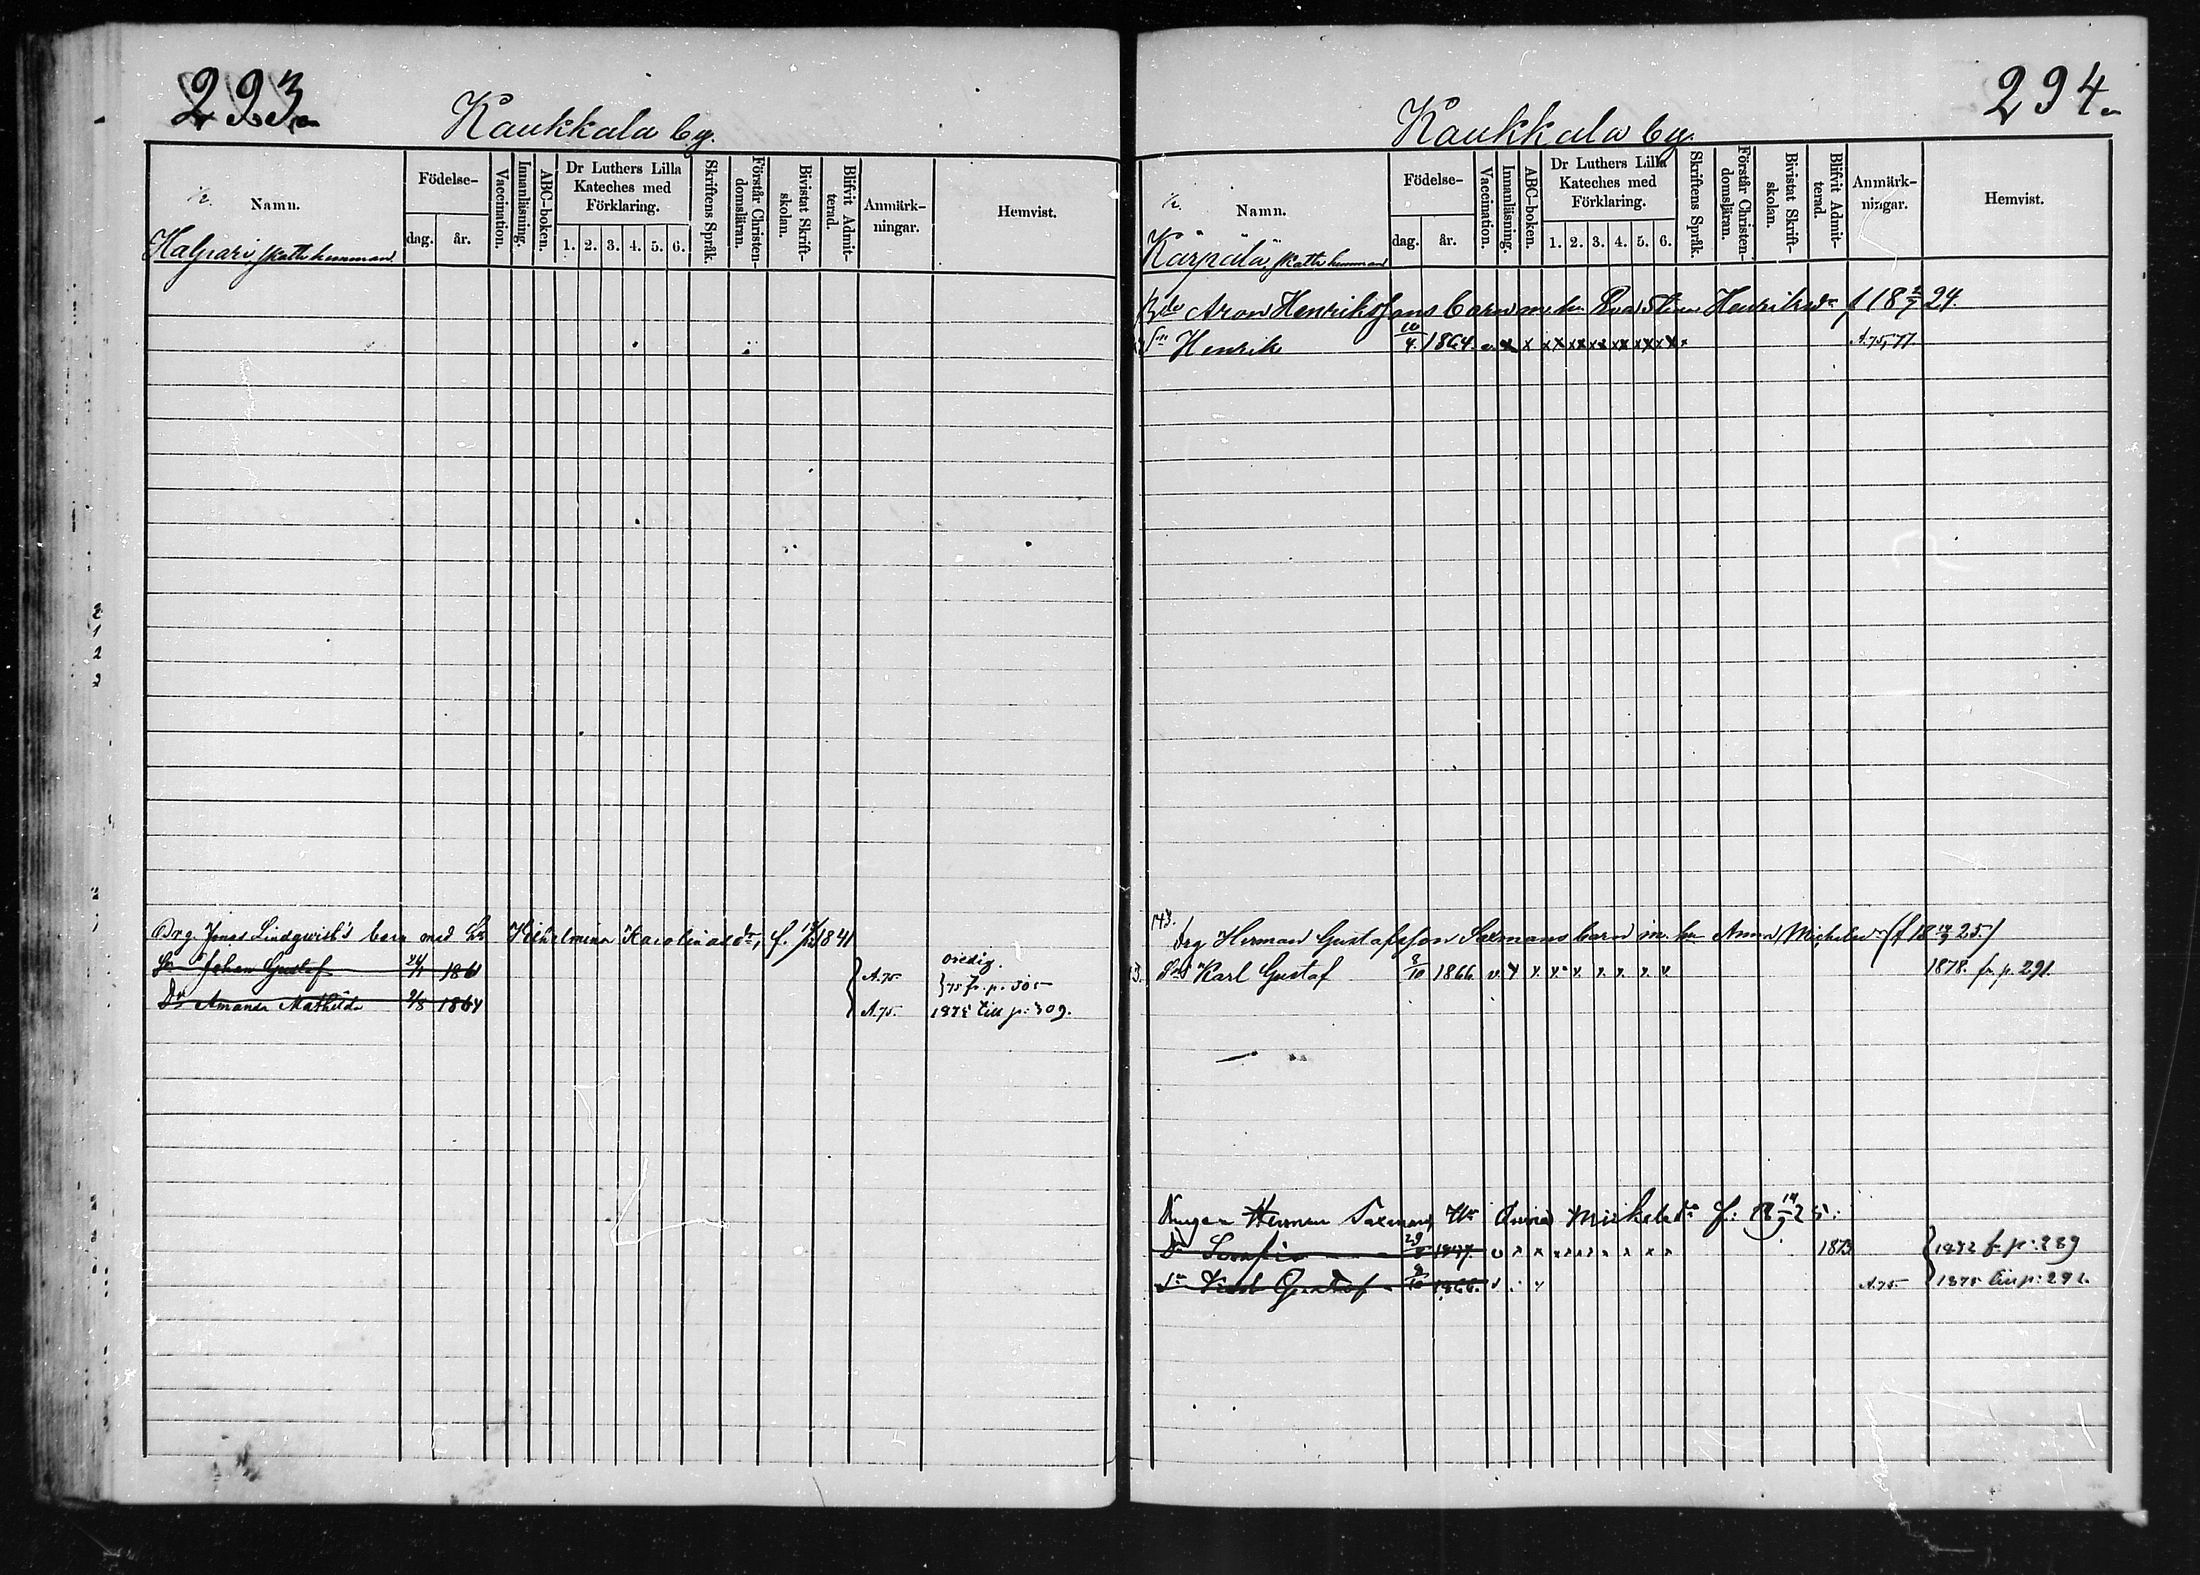 293.
Kaukkala by.
Namn.
Födelse-
dag.
år.
Vaccination.
Innanläsning.
ABC-boken.
Dr Luthers Lilla
Kateches med
Förklaring.
1. 2. 3. 4. 5. 6.
Skriftens Språk.
Förstår Christen-
domsläran.
Bivistat Skrift-
skolan.
Blifvit Admit-
terad.
Anmärk-
ningar.
Hemvist.
skattehemman
Drg Jonas barn med Hu Vilhelmina Karolina dr, f. 1841
oviedig.
Sn Johan Gustof 24/1 1861 A.75 75 fr. p. 305
Dr Amanda Mathilda 9/8 1864 A.75. 1875 till p: 309.
294.
Kaukkala by.
Namn.
Födelse-
dag.
år.
Vaccination.
Innanläsning.
ABC-boken.
Dr Luthers Lilla
Kateches med
Förklaring.
1. 2. 3. 4. 5. 6.
Skriftens Språk.
Förstår Christen-
domsläran.
Bivistat Skrift-
skolan.
Blifvit Admit-
terad.
Anmärk-
ningar.
Hemvist.
Kärpälä, skattehemman
Aron Henrikssons barn m. hu Henriksdr f 18 24.
Sn Henrik 10/4. 1864. v. x x x x x x x x x x x x x x x A.75, 77.
143.
Drg Herman Gustafsson Salmans barn m. hu Anna Michelsdr (f 18 14/9 25)
Sn Karl Gustaf 8/10 1866 v. x x x x x x x x 1878. fr. p. 291.
Herman Hu Anna Mickelsdr f: 18 14/9 25:
Dr Serafia 29 1857. v x x x x x x x x x x 1873 1872 fr. p: 289
Sn Karl Gustaf 8/10 1866. v A.75 1875 till p: 291.